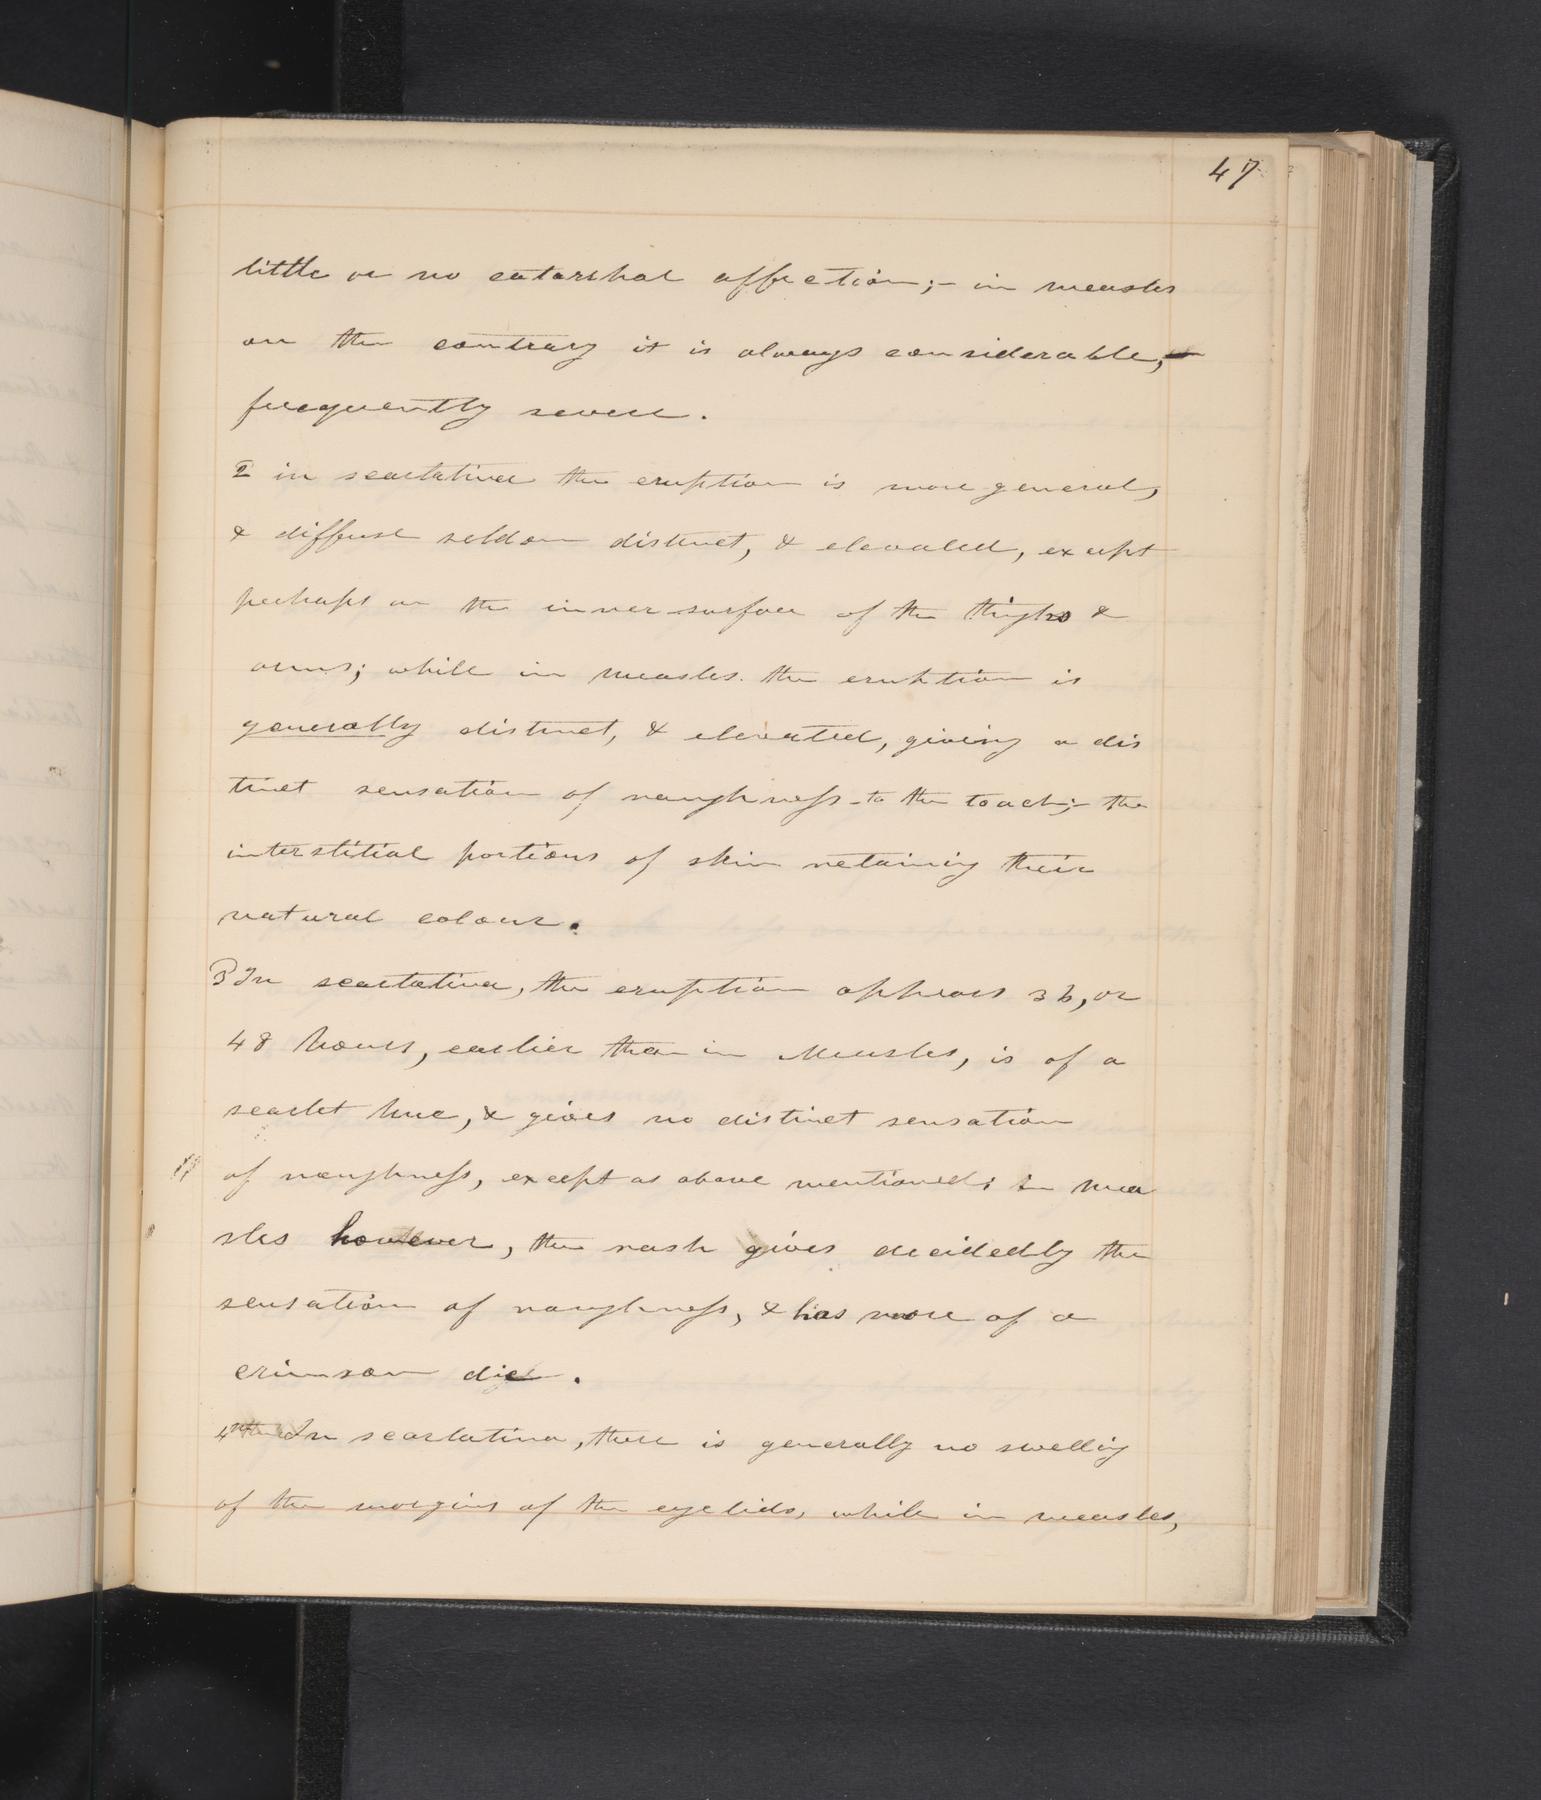 47
little or no catarrhal affection;- in measles
on the contrary it is always considerable,-
frequently severe.
2 in scarlatina the eruption is more general,
& diffuse seldom distinct, & elevated, except
perhaps on the inner surface of the thighs &
arms; while in measles the eruption is
generally distinct, & elevated, giving a dis
tinct sensation of roughness to the touch;- the
interstitial portions of skin retaining their
natural colour.
3 In scarlatina, the eruption appears 36, or
48 hours, earlier than in Measles, is of a
scarlet hue, & gives no distinct sensation
of roughness, except as above mentioned; In mea
sles however, the rash gives decidedly the
sensation of roughness, & has more of a
crimson die.
4th In scarlatina, there is generally no swelling
of the margins of the eyelids, while in measles,